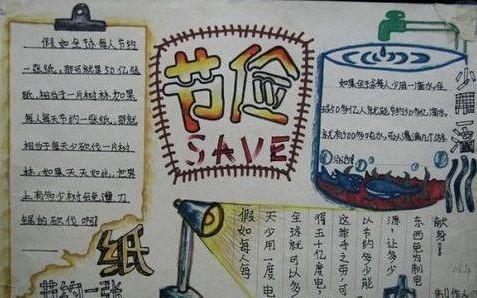 假如全球每人节约
一张纸,那可就是50亿张
纸,相当于一片树林,如果
每人每天节约一张纸,那就
相当于每天少砍伐一片树
林,如果天天如此,世界
上有多少树木免遭刀
锯的砍伐啊!
纸
节约一张
节俭
SAVE
如果全球每人少用一滴水,在
50多亿人就能节约50多亿滴水,
就有500多吨水,可以灌满几个
假如每人每
天少用一度电
全球就可以多
得五十亿度电
这举手之劳,可
以节约多少能
源,让多少
东西免为制电
献身!
制作人